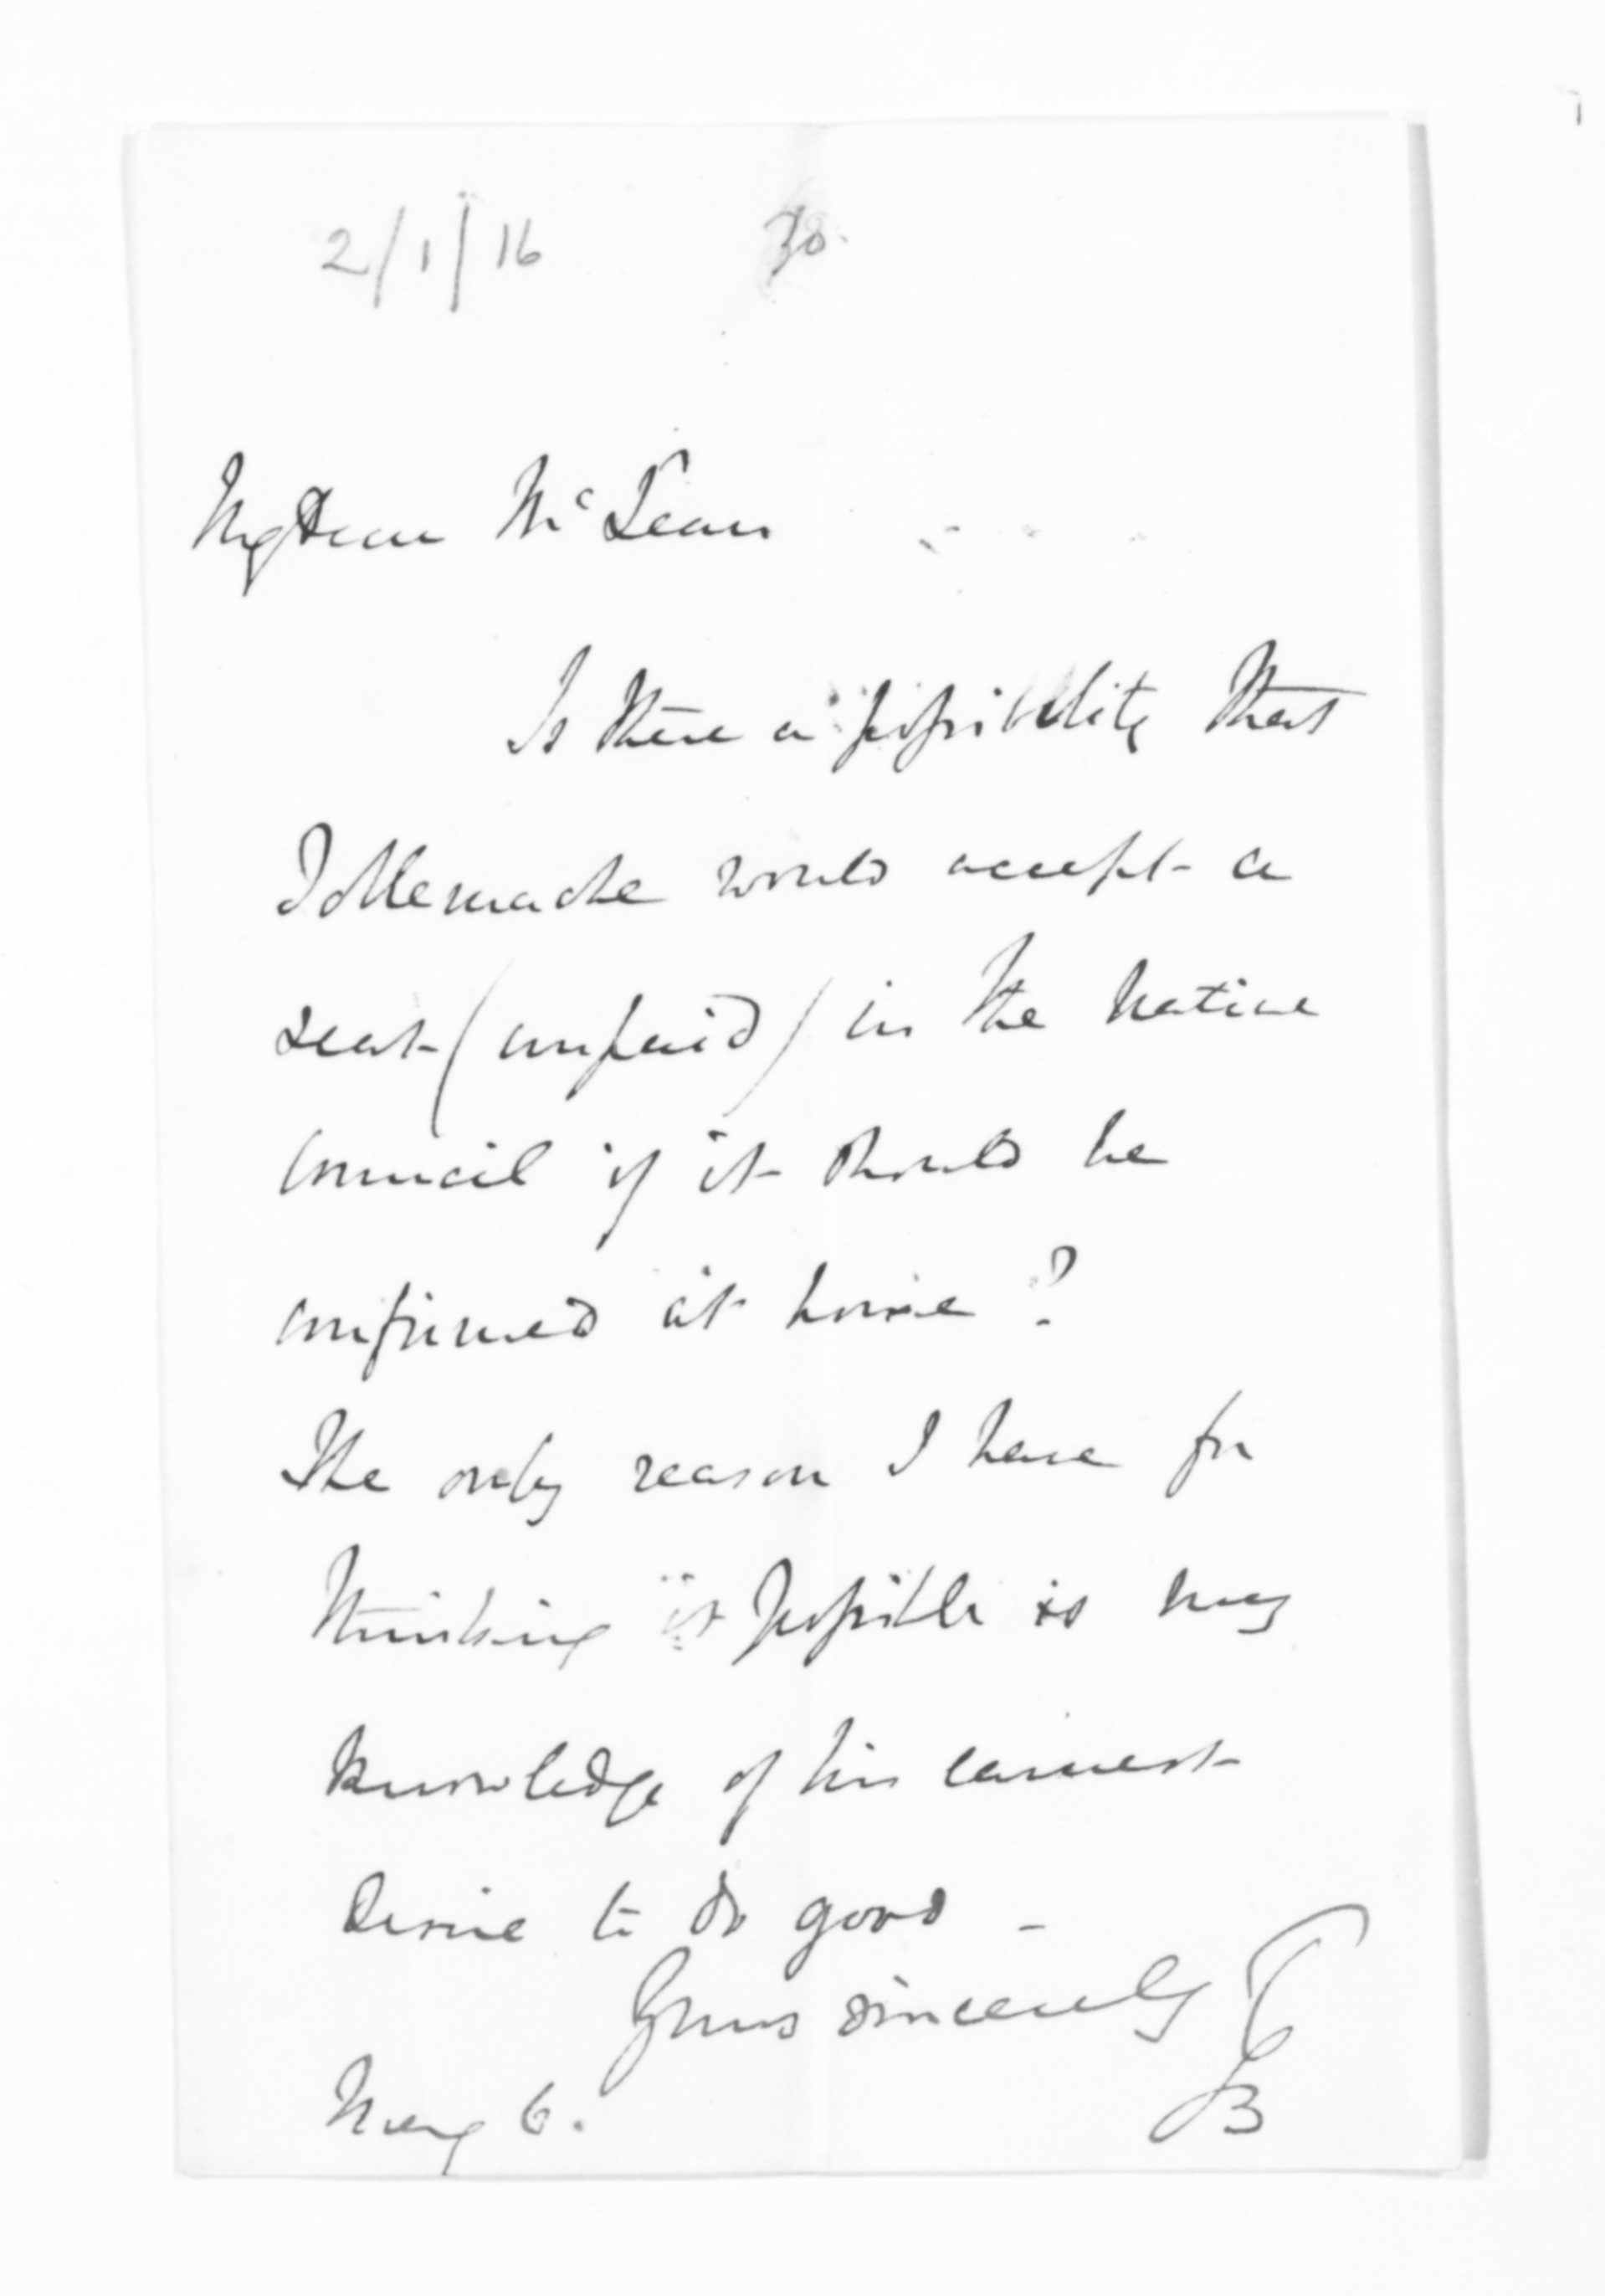 2/1/16 38.
My dear McLean
Is there a possibility that
Tollemache would accept a
seat (unpaid) in the Native
Council if it should be
confirmed at home?
The only reason I have for
thinking it possible is my
knowledge of his earnest
desire to do good -
Yours sincerely
B
May 6.